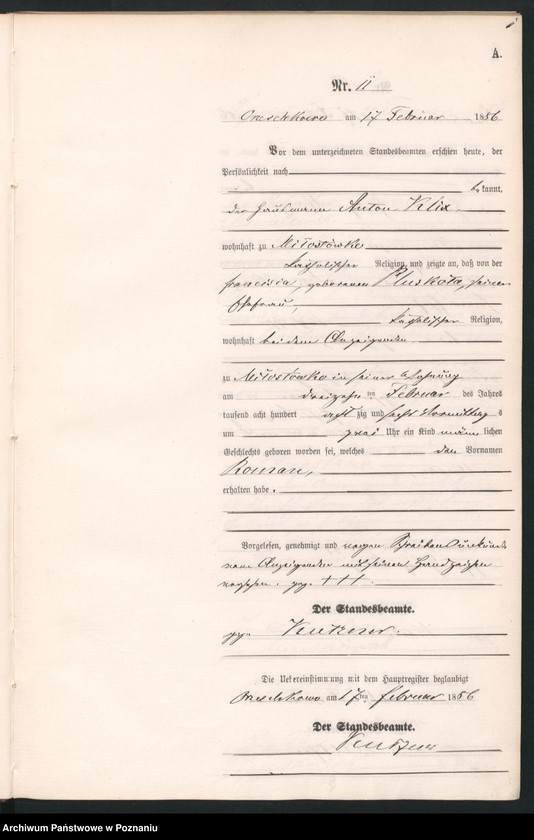 A.
Nr. 11
Orzeschkowo am 17 Februar 1886
Vor dem unterzeichneten Standesbeamten erschien heute, der
Persönlichkeit nach
be kannt,
der Hausmann Anton Klix
wohnhaft zu Miłostówko
katholischer Religion, und zeigte an, daß von der
Francisca, geborenen Pluskota, seiner
Ehefrau,
katholischer Religion,
wohnhaft bei dem Anzeigenden
zu Miłostówko in seiner Wohnung
am dreizehn ten Februar des Jahres
tausend acht hundert acht zig und sechs Vormittag s
um zwei Uhr ein Kind männ lichen
Geschlechts geboren worden sei, welches den Vornamen
Roman,
erhalten habe.
Vorgelesen, genehmigt und wegen Schreibens unkunde
vom Anzeigenden mit seinen Handzeichen
versehen. gez. +++
Der Standesbeamte.
gez.
Die Uebereinstimmung mit dem Hauptregister beglaubigt
Orzeschkowo am 17ten Februar 1886
Der Standesbeamte.
Archiwum Państwowe w Poznaniu